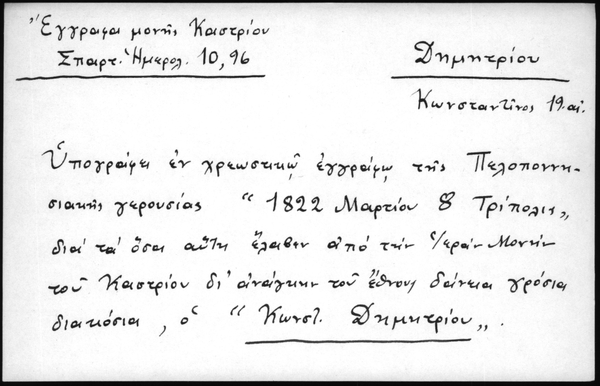 Ἔγγραφα μονῆς Καστρίου
Σπαρτ. Ἡμερολ. 10, 96
Δημητρίου
Κωνσταντῖνος 19.αἰ.
Ὑπογράφει ἐν χρεωστικῷ ἐγγράφῳ τῆς Πελοποννη-
σιακῆς γερουσίας "1822 Μαρτίου 8 Τρίπολις"
διά τά ὅσα αὕτη ἔλαβεν ἀπό τήν ἱεράν Μονήν
τοῦ Καστρίου δι' ἀνάγκην τοῦ ἔθνους δάνεια γρόσια
διακόσια, ὁ "Κωνστ. Δημητρίου".